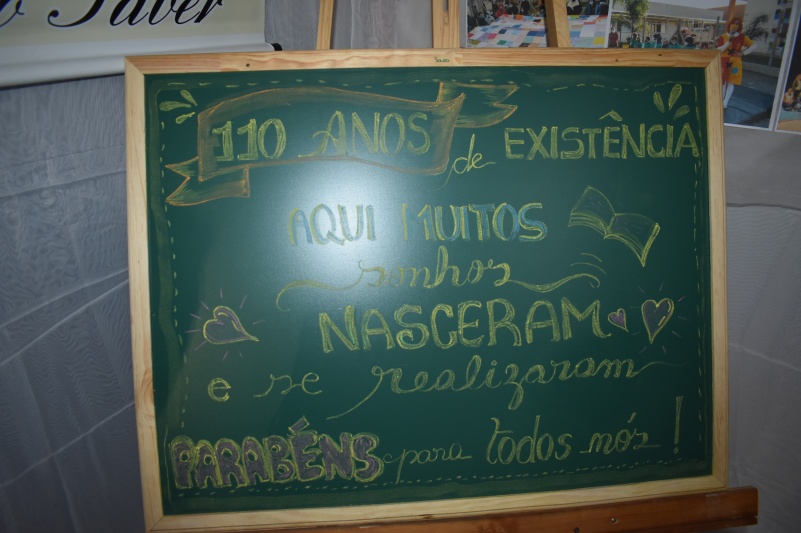 110 ANOS de EXISTÊNCIA
AQUI MUITOS
sonhos
NASCERAM
e se realizaram
PARABÉNS para todos nós!